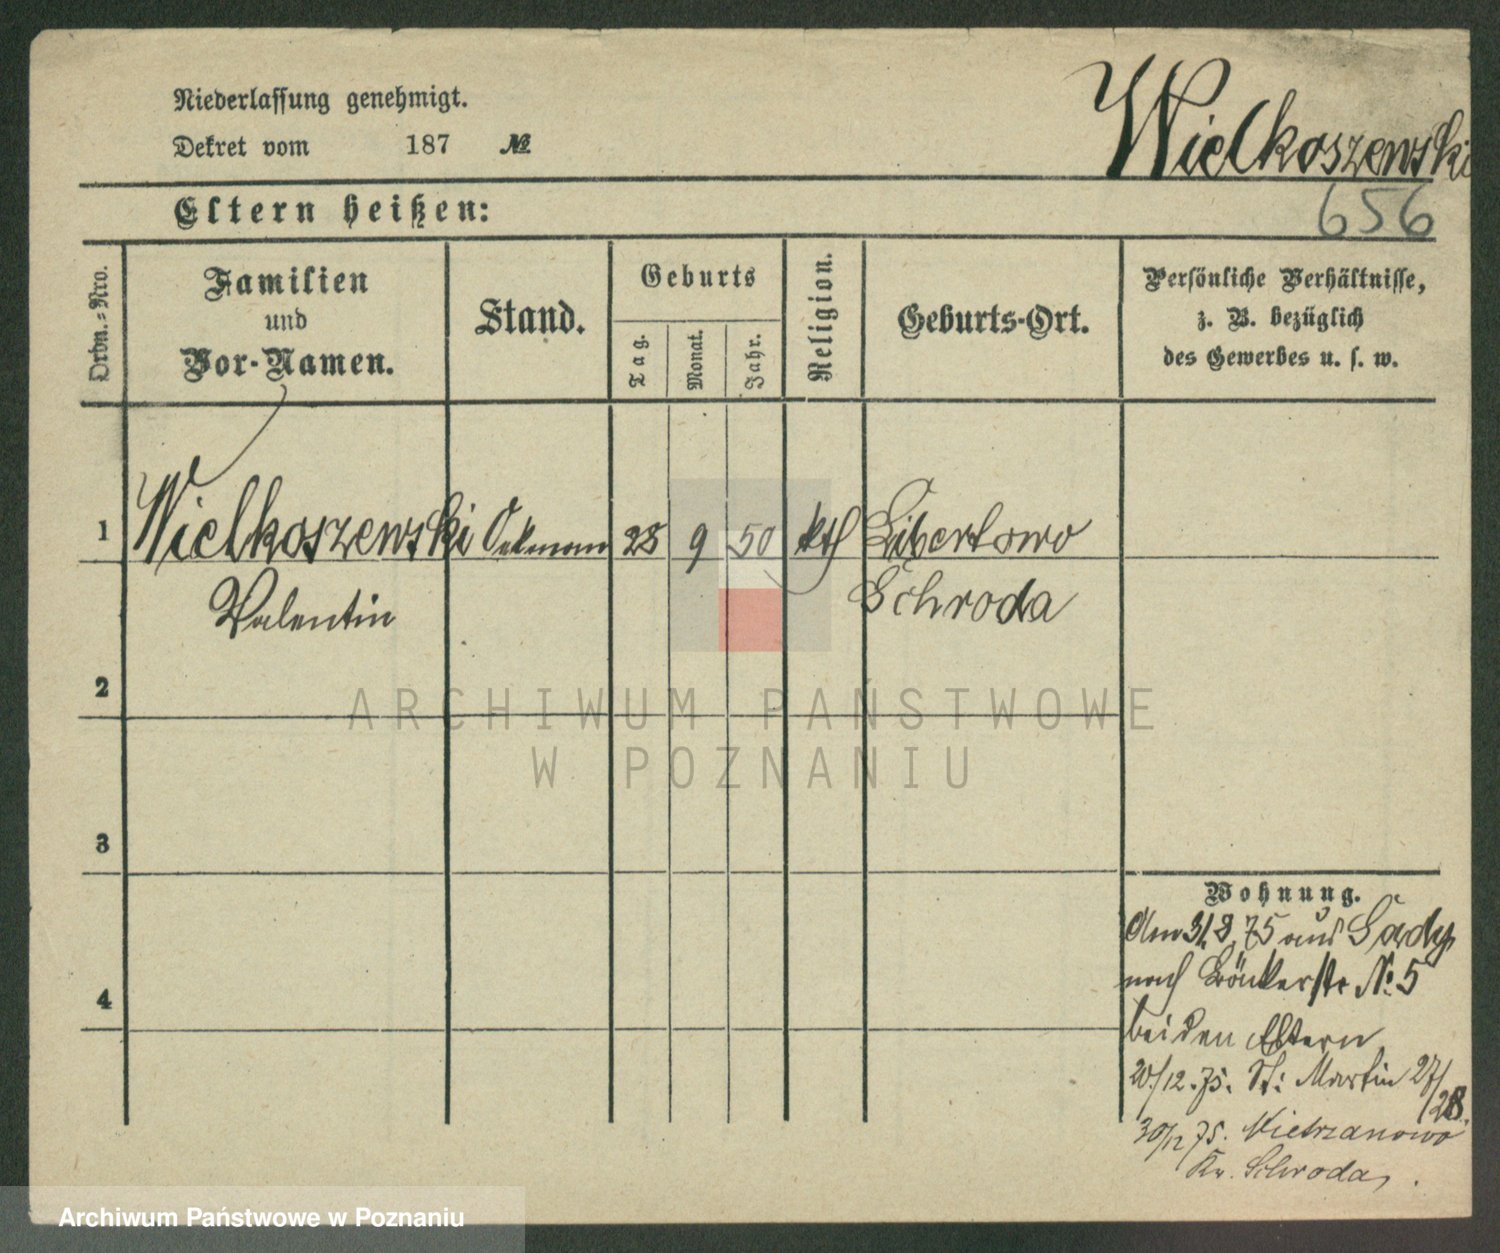 Niederlassung genehmigt.
Dekret vom 187 №
Wielkoszewski
656
Eltern heißen:
Ordn.-Nro.
Familien
und
Vor-Namen.
Stand.
Geburts
Tag.
Monat.
Jahr.
Religion.
Geburts-Ort.
Persönliche Verhältnisse,
z. B. bezüglich
des Gewerbes u. s. w.
1 Wielkoszewski 28 9 50 kth Libertowo
Valentin Schroda
2
ARCHIWUM PAŃSTWOWE
W POZNANIU
3
4
Wohnung.
Am 31.8.75 aus Sady
nach Bäckerstr № 5
bei den Eltern
20/12.75. St: Martin 27/
28.
30/12 75. Pietrzanowo
Kr. Schroda.
Archiwum Państwowe w Poznaniu